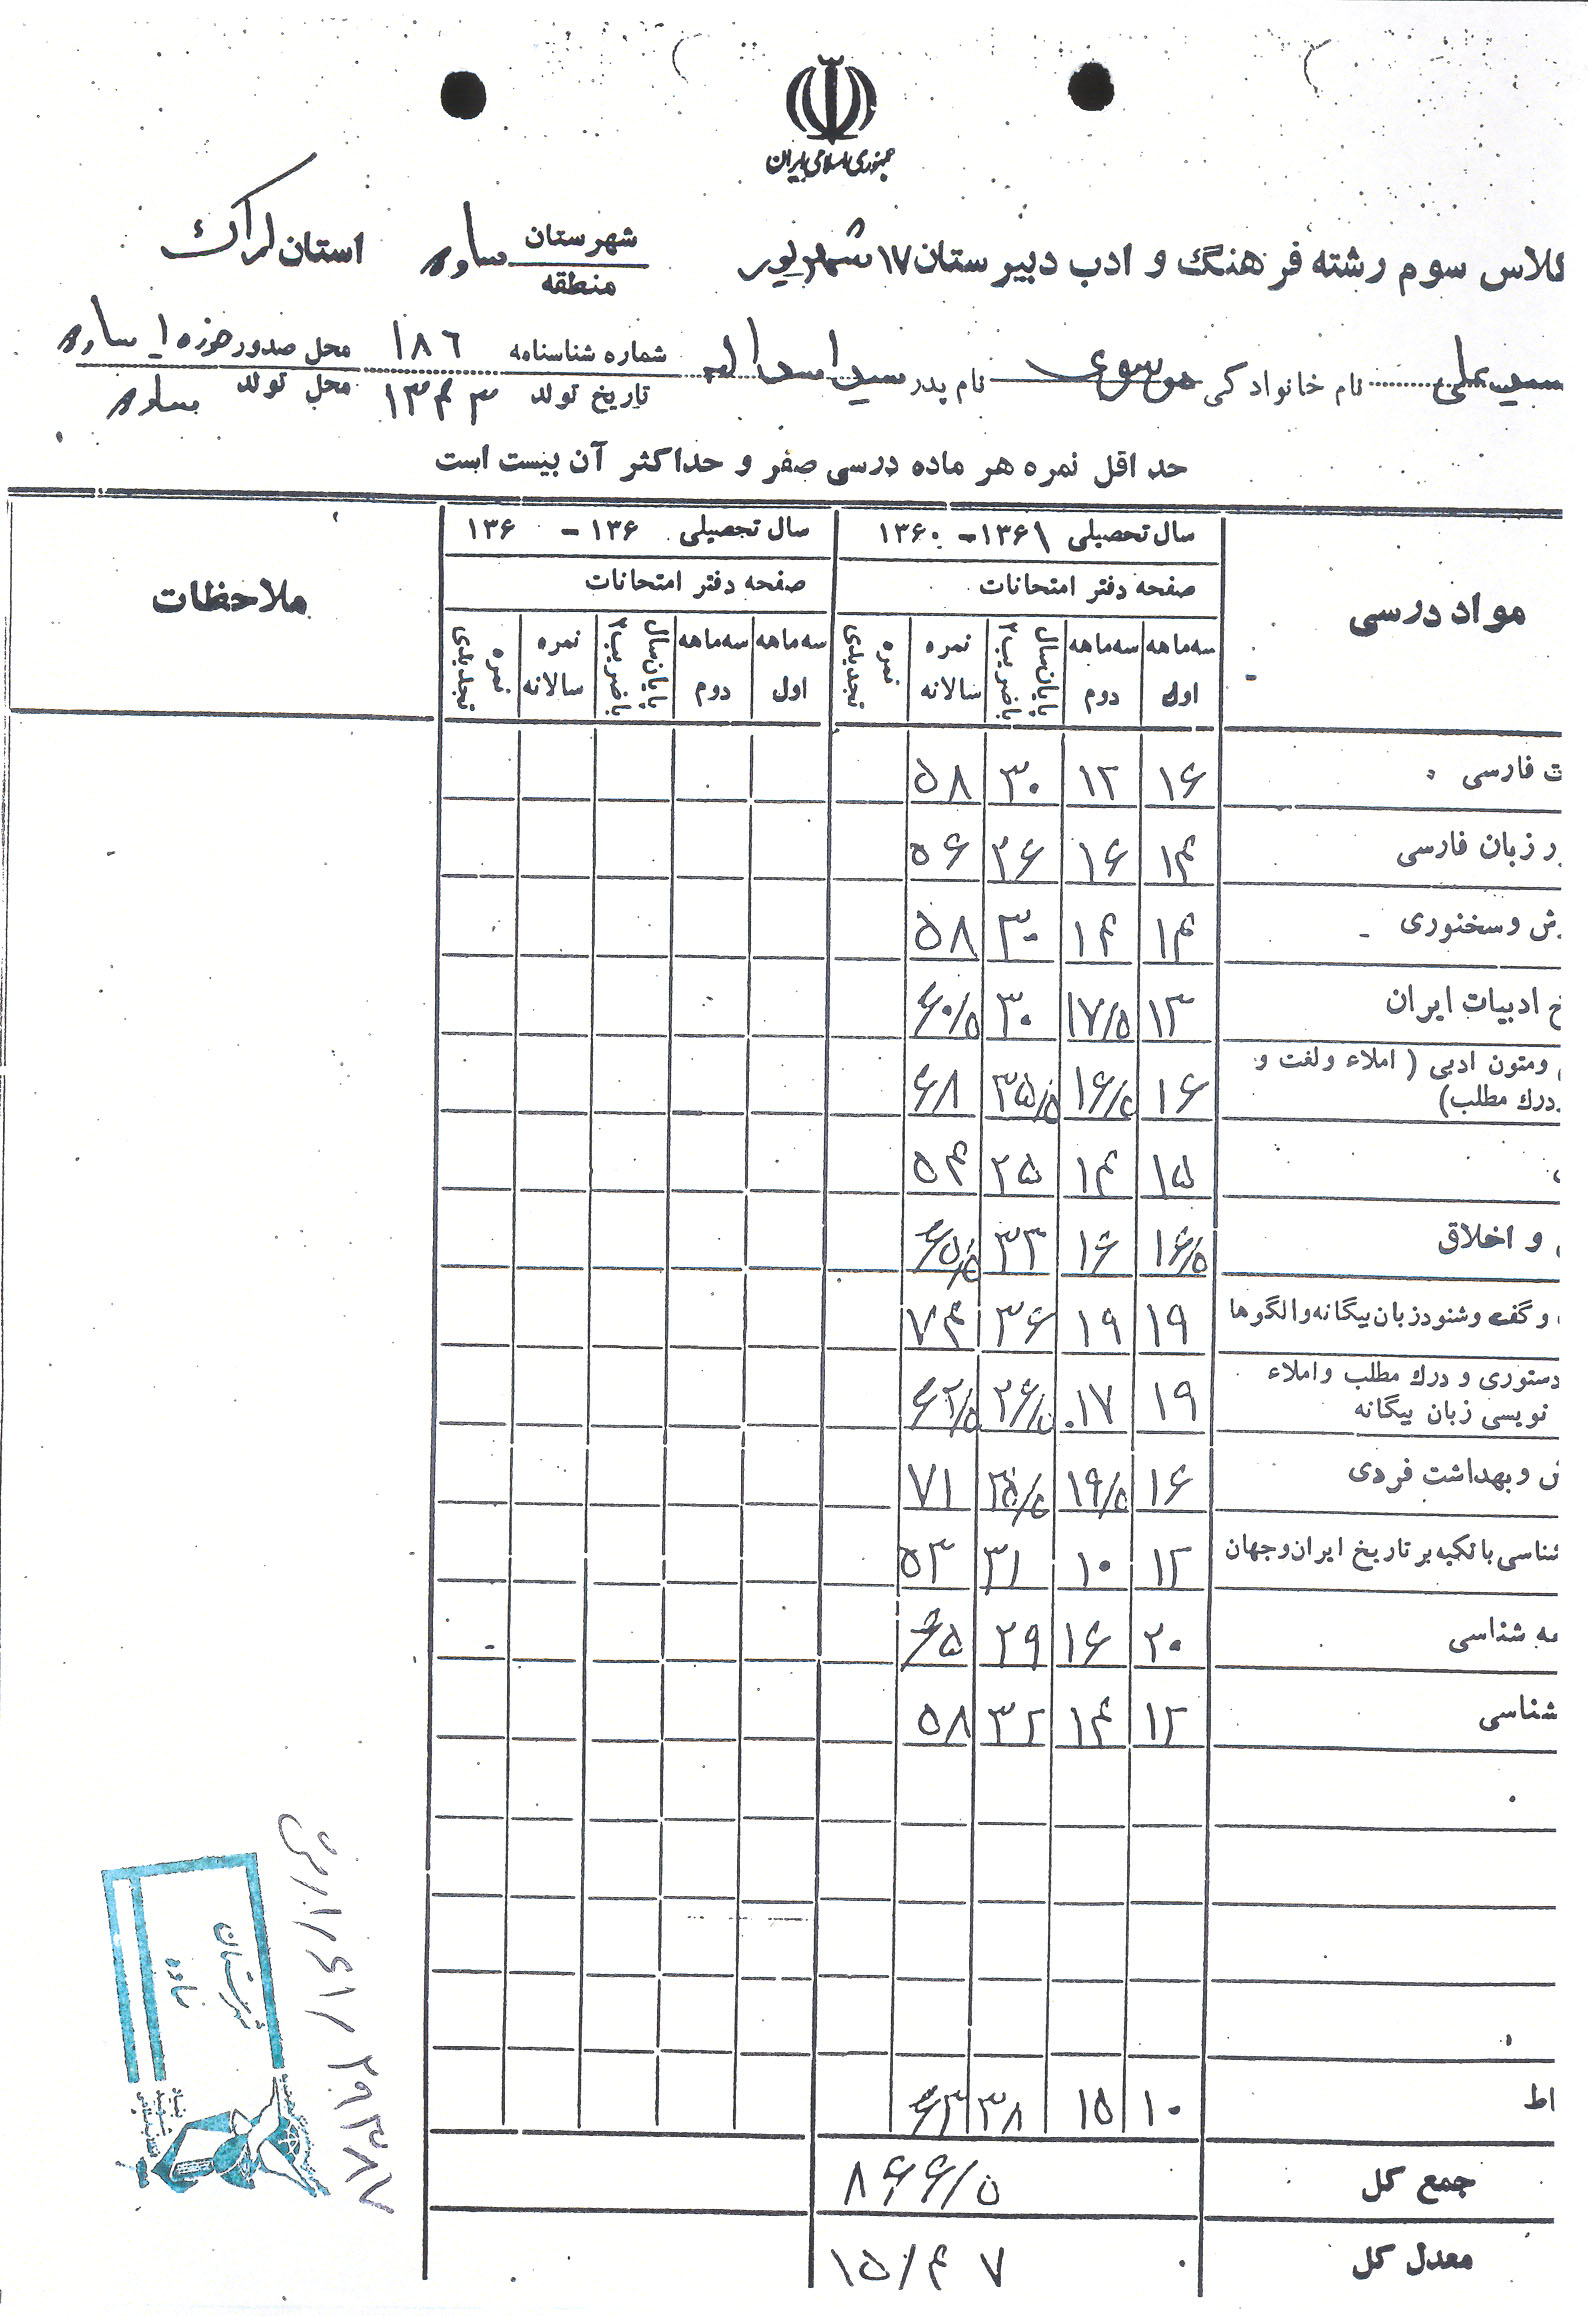 جمهوری اسلامی ایران
کلاس سوم رشته فرهنگ و ادب دبیرستان ۱۷ شهریور شهرستان منطقه ساوه استان اراک
سید علی نام خانوادگی موسوی نام پدر سید اسدالله شماره شناسنامه ۱۸۶ محل صدور حوزه ۱ ساوه
تاریخ تولد ۱۳۴۳ محل تولد ساوه
حداقل نمره هر ماده درسی صفر و حداکثر آن بیست است
مواد درسی سال تحصیلی ۱۳۶۱ - ۱۳۶۰ سال تحصیلی ۱۳۶ - ۱۳۶ ملاحظات
صفحه دفتر امتحانات صفحه دفتر امتحانات
سه ماهه اول سه ماهه دوم پایان سال با ضریب ۲ نمره سالانه نمره تجدیدی سه ماهه اول سه ماهه دوم پایان سال با ضریب ۲ نمره سالانه نمره تجدیدی
ت فارسی ۱۶ ۱۲ ۳۰ ۵۸
ر زبان فارسی ۱۴ ۱۶ ۲۶ ۵۶
ش و سخنوری ۱۴ ۱۴ ۳۰ ۵۸
خ ادبیات ایران ۱۳ ۱۷/۵ ۳۰ ۶۰/۵
و متون ادبی ( املاء و لغت و
درک مطلب) ۱۶ ۱۶/۵ ۳۵/۵ ۶۸
۱۵ ۱۴ ۲۵ ۵۴
و اخلاق ۱۶/۵ ۱۶ ۳۳ ۶۵/۵
و گفت و شنود زبان بیگانه و الگوها ۱۹ ۱۹ ۳۶ ۷۴
دستوری و درک مطلب و املاء
نویسی زبان بیگانه ۱۹ ۱۷ ۲۶/۵ ۶۲/۵
ش و بهداشت فردی ۱۶ ۱۹/۵ ۳۵/۵ ۷۱
شناسی با تکیه بر تاریخ ایران و جهان ۱۲ ۱۰ ۳۱ ۵۳
مه شناسی ۲۰ ۱۶ ۲۹ ۶۵
شناسی ۱۲ ۱۴ ۳۲ ۵۸
اط ۱۰ ۱۵ ۳۸ ۶۳
جمع کل ۸۶۶/۵
معدل کل ۱۵/۴۷
شهرستان
ساوه